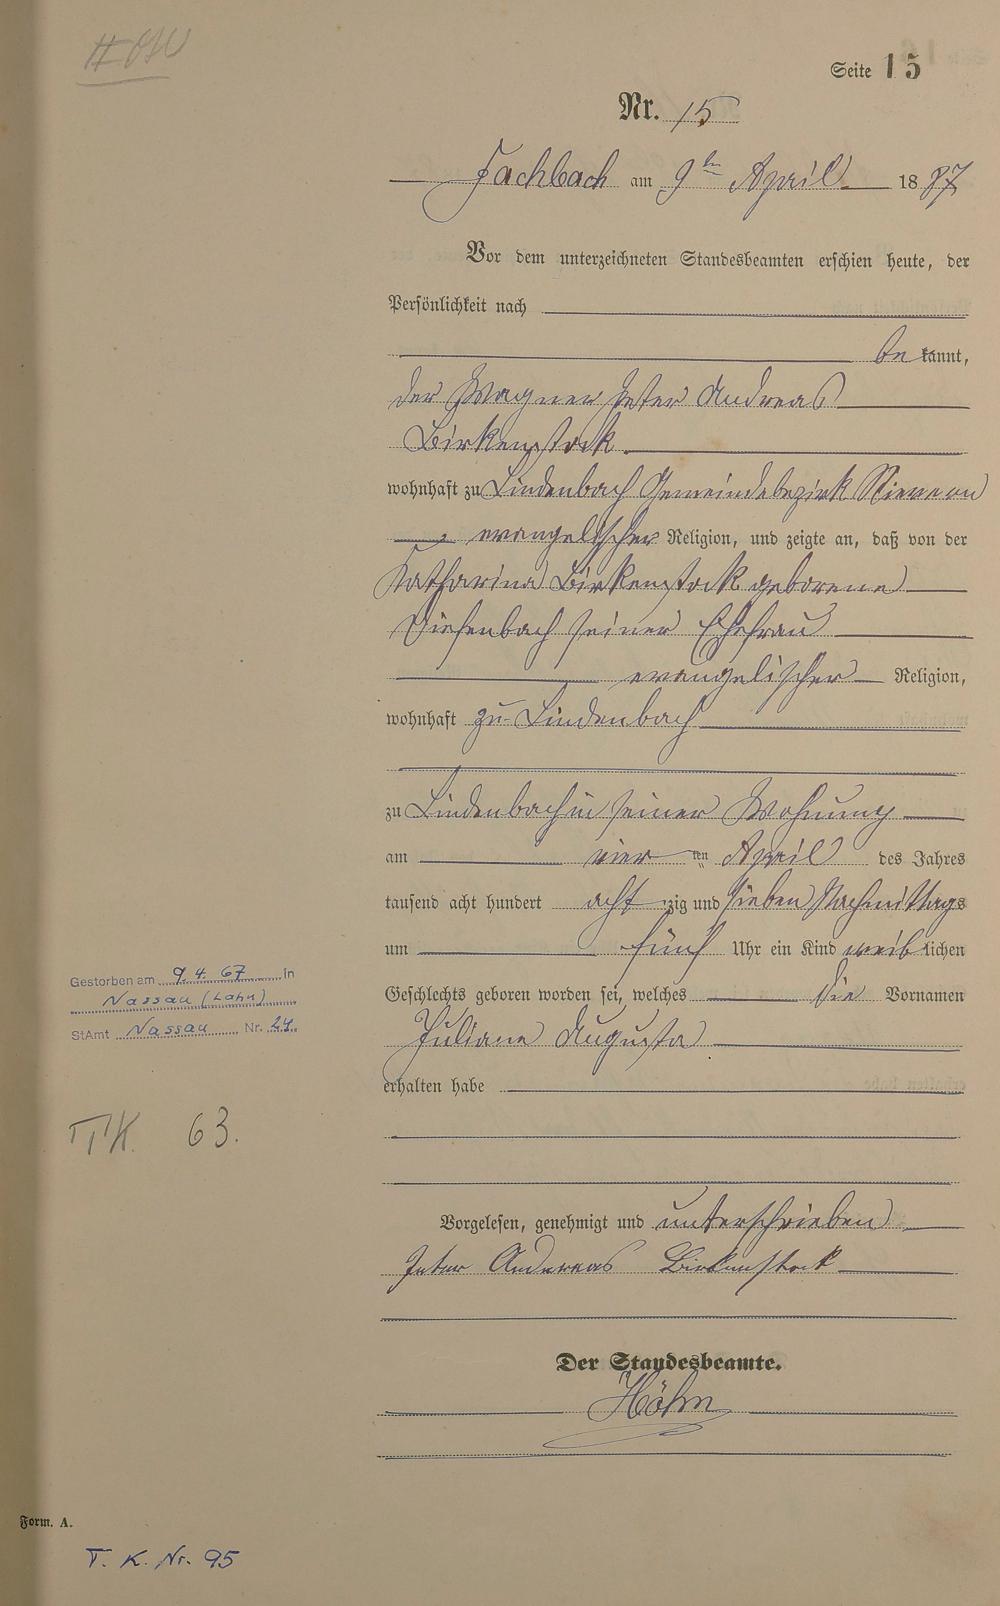 Seite 15
Nr. 15
Fachbach am 9ten April 1887
Vor dem unterzeichneten Standesbeamten erschien heute, der
Persönlichkeit nach
be kannt,
der Wagner Peter Andreas
Birkenstock
wohnhaft zu Lindenbach Gemeindebezirk Nievern
evangelischer Religion, und zeigte an, daß von der
Katharina Birkenstock geborene
Diefenbach seiner Ehefrau
evangelischer Religion,
wohnhaft zu Lindenbach
zu Lindenbach in seiner Wohnung
am vier ten April des Jahres
tausend acht hundert acht zig und sieben Nachmittags
um fünf Uhr ein Kind weib lichen
Geschlechts geboren worden sei, welches die Vornamen
Juliane Augusta
erhalten habe
Vorgelesen, genehmigt und unterschrieben
Peter Andreas Birkenstock
Der Standesbeamte.
Höhn
Gestorben am 9.4.67 in
Nassau (Lahn)
StAmt Nassau Nr. 24.
TK. 63.
Form. A.
T. K. Nr. 95